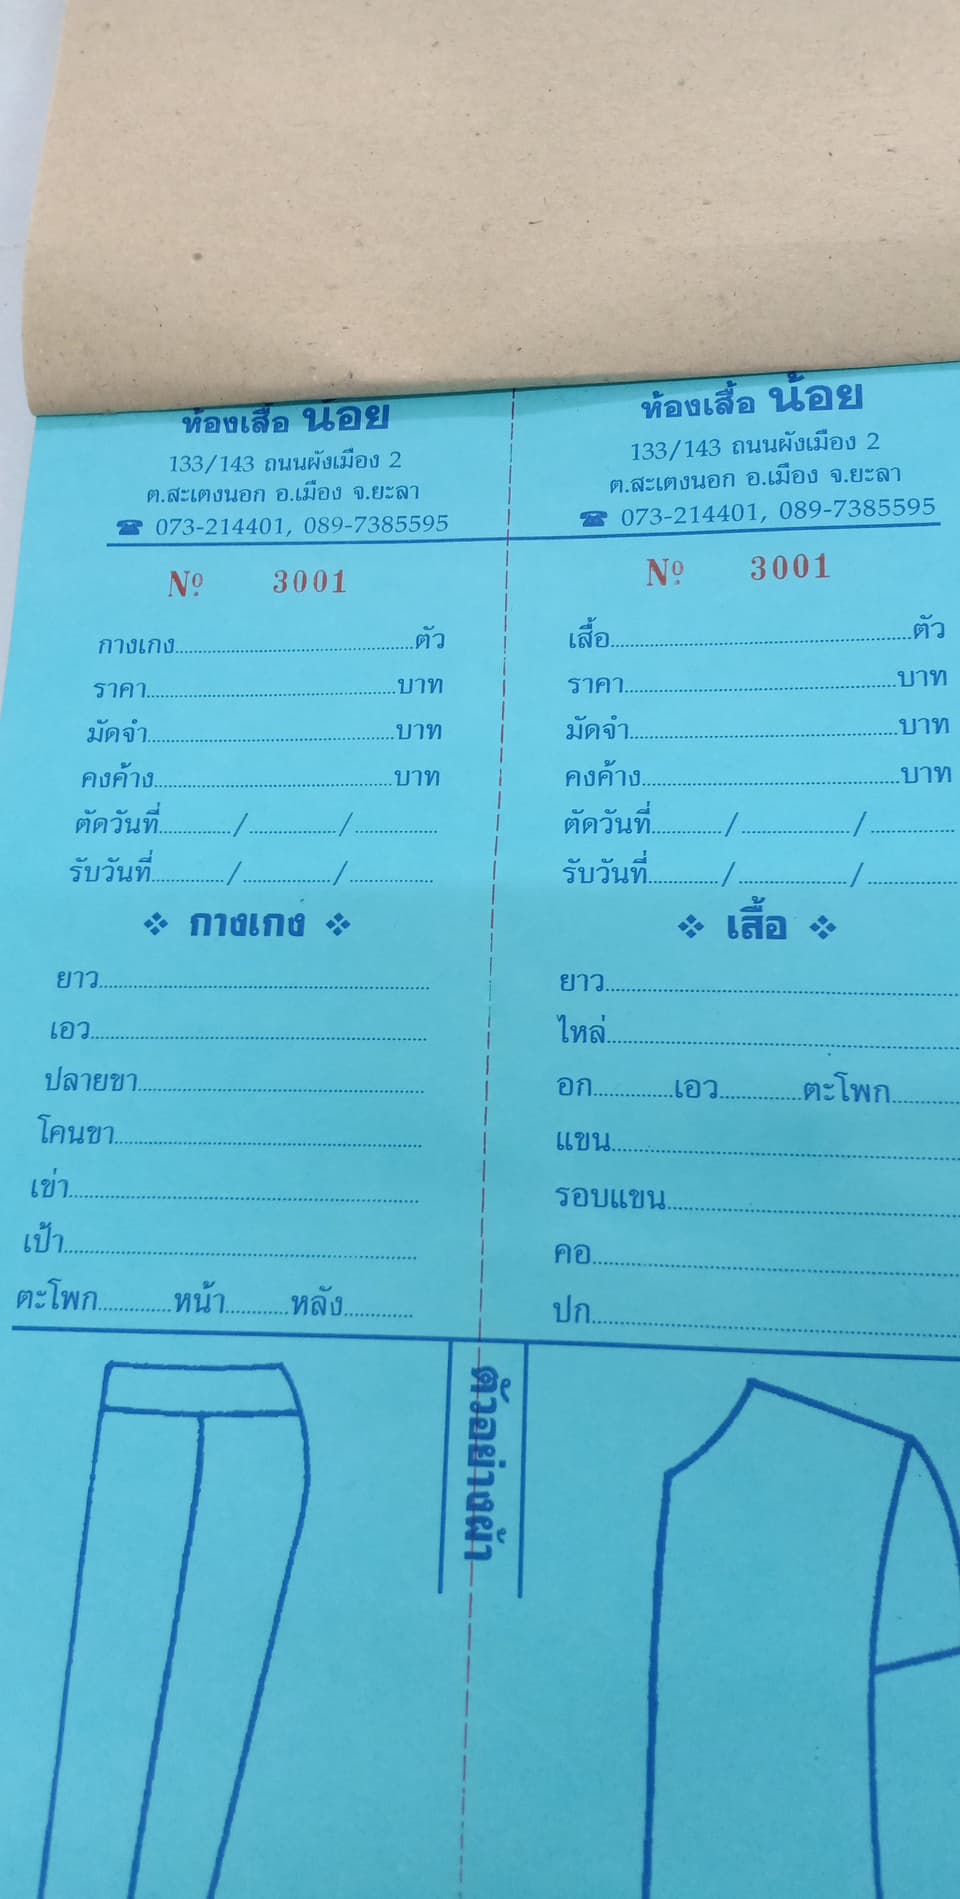 ห้องเสื้อ น้อย
133/143 ถนนผังเมือง 2
ต.สะเตงนอก อ.เมือง จ.ยะลา
☎ 073-214401, 089-7385595
Nº 3001
กางเกง..........ตัว
ราคา..........บาท
มัดจำ..........บาท
คงค้าง..........บาท
ตัดวันที่........../........../..........
รับวันที่........../........../..........
❖ กางเกง ❖
ยาว..........
เอว..........
ปลายขา..........
โคนขา..........
เข่า..........
เป้า..........
ตะโพก..........หน้า..........หลัง..........
ห้องเสื้อ น้อย
133/143 ถนนผังเมือง 2
ต.สะเตงนอก อ.เมือง จ.ยะลา
☎ 073-214401, 089-7385595
Nº 3001
เสื้อ..........ตัว
ราคา..........บาท
มัดจำ..........บาท
คงค้าง..........บาท
ตัดวันที่........../........../..........
รับวันที่........../........../..........
❖ เสื้อ ❖
ยาว..........
ไหล่..........
อก..........เอว..........ตะโพก..........
แขน..........
รอบแขน..........
คอ..........
ปก..........
ตัวอย่างผ้า